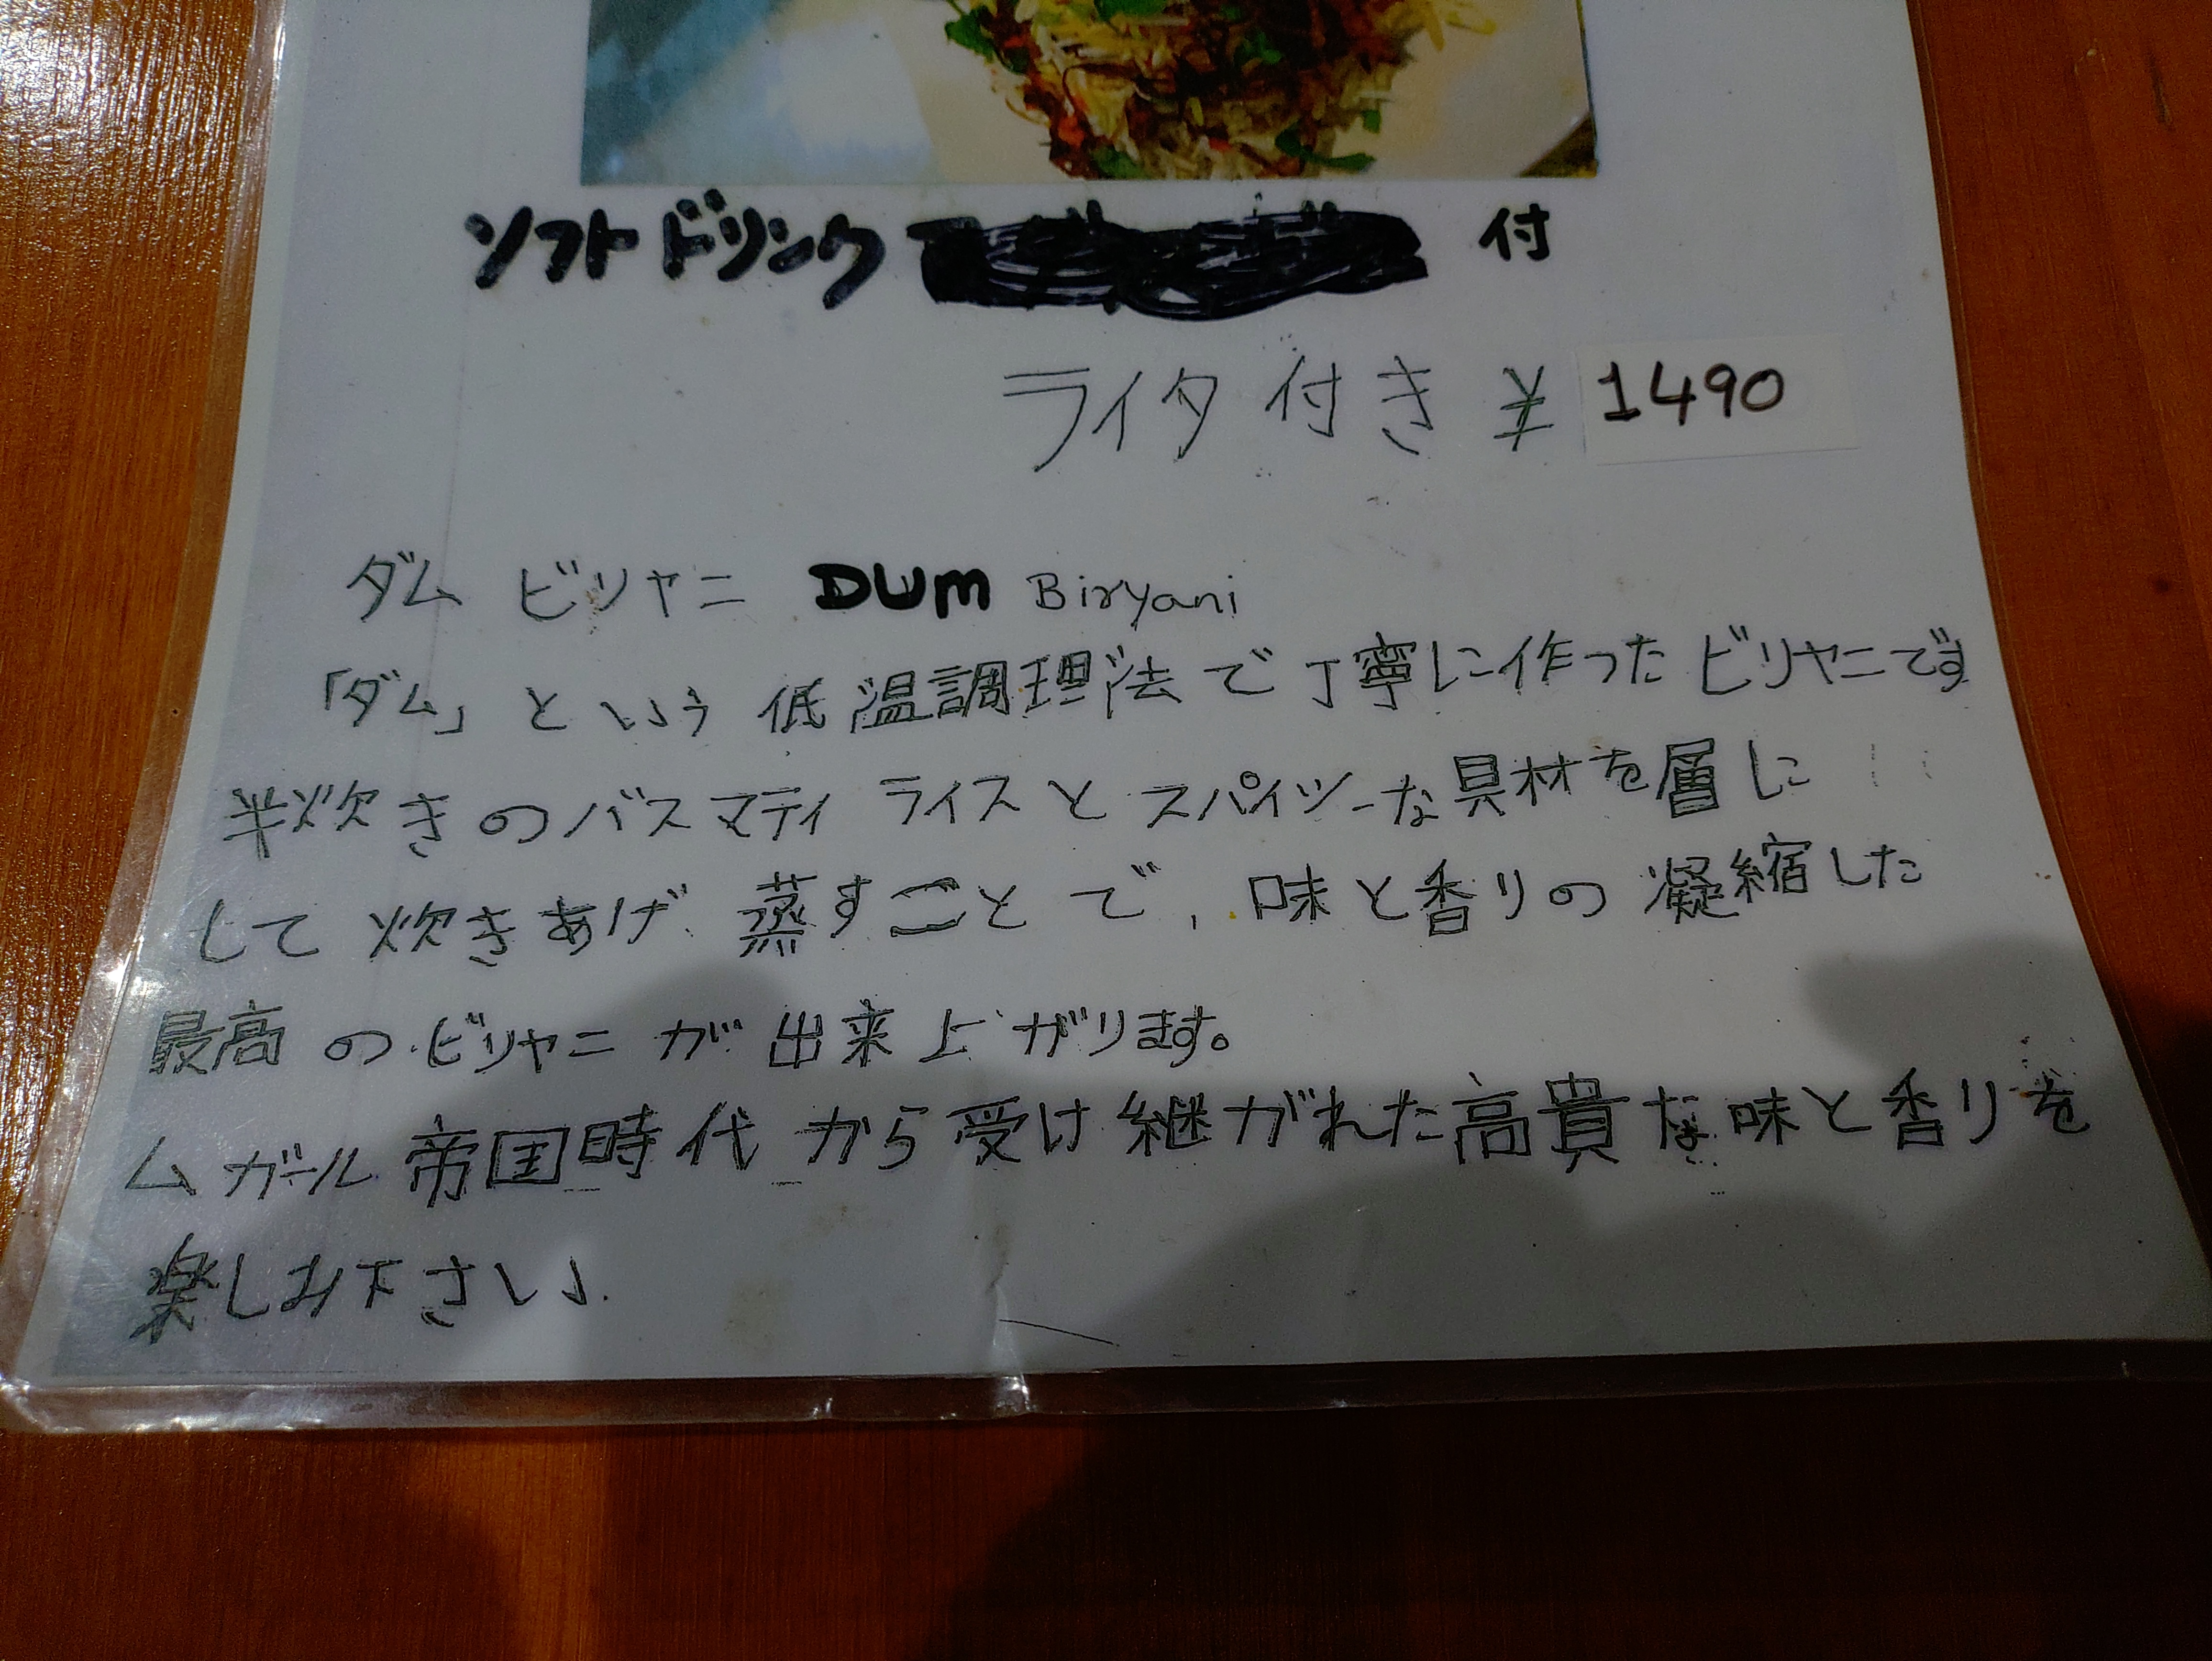 ソフトドリンク 付
ライタ付き ¥1490
ダム ビリヤニ DUM Biryani
「ダム」という低温調理法で丁寧に作ったビリヤニです
半炊きのバスマティ ライスとスパイシーな具材を層に
して炊きあげ 蒸すことで、味と香りの凝縮した
最高のビリヤニが出来上がります。
ムガール帝国時代から受け継がれた高貴な味と香りを
楽しみ下さい.